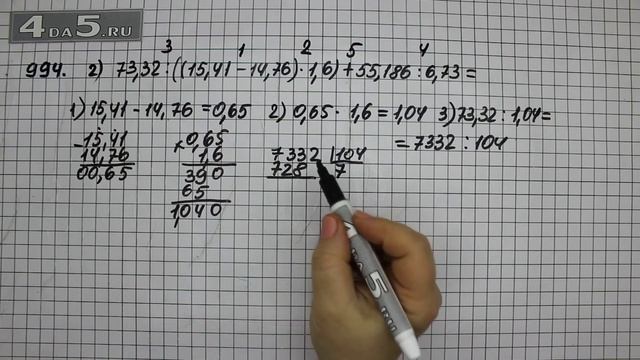 4DA5.RU
3 1 2 5 4
994. 2) 73,32 : ((15,41 – 14,76) · 1,6) + 55,186 : 6,73 =
1) 15,41 – 14,76 = 0,65 2) 0,65 · 1,6 = 1,04 3) 73,32 : 1,04 =
= 7332 : 104
– 15,41
14,76
00,65
× 0,65
1,6
390
65
1,040
7332 | 104
728 7
5